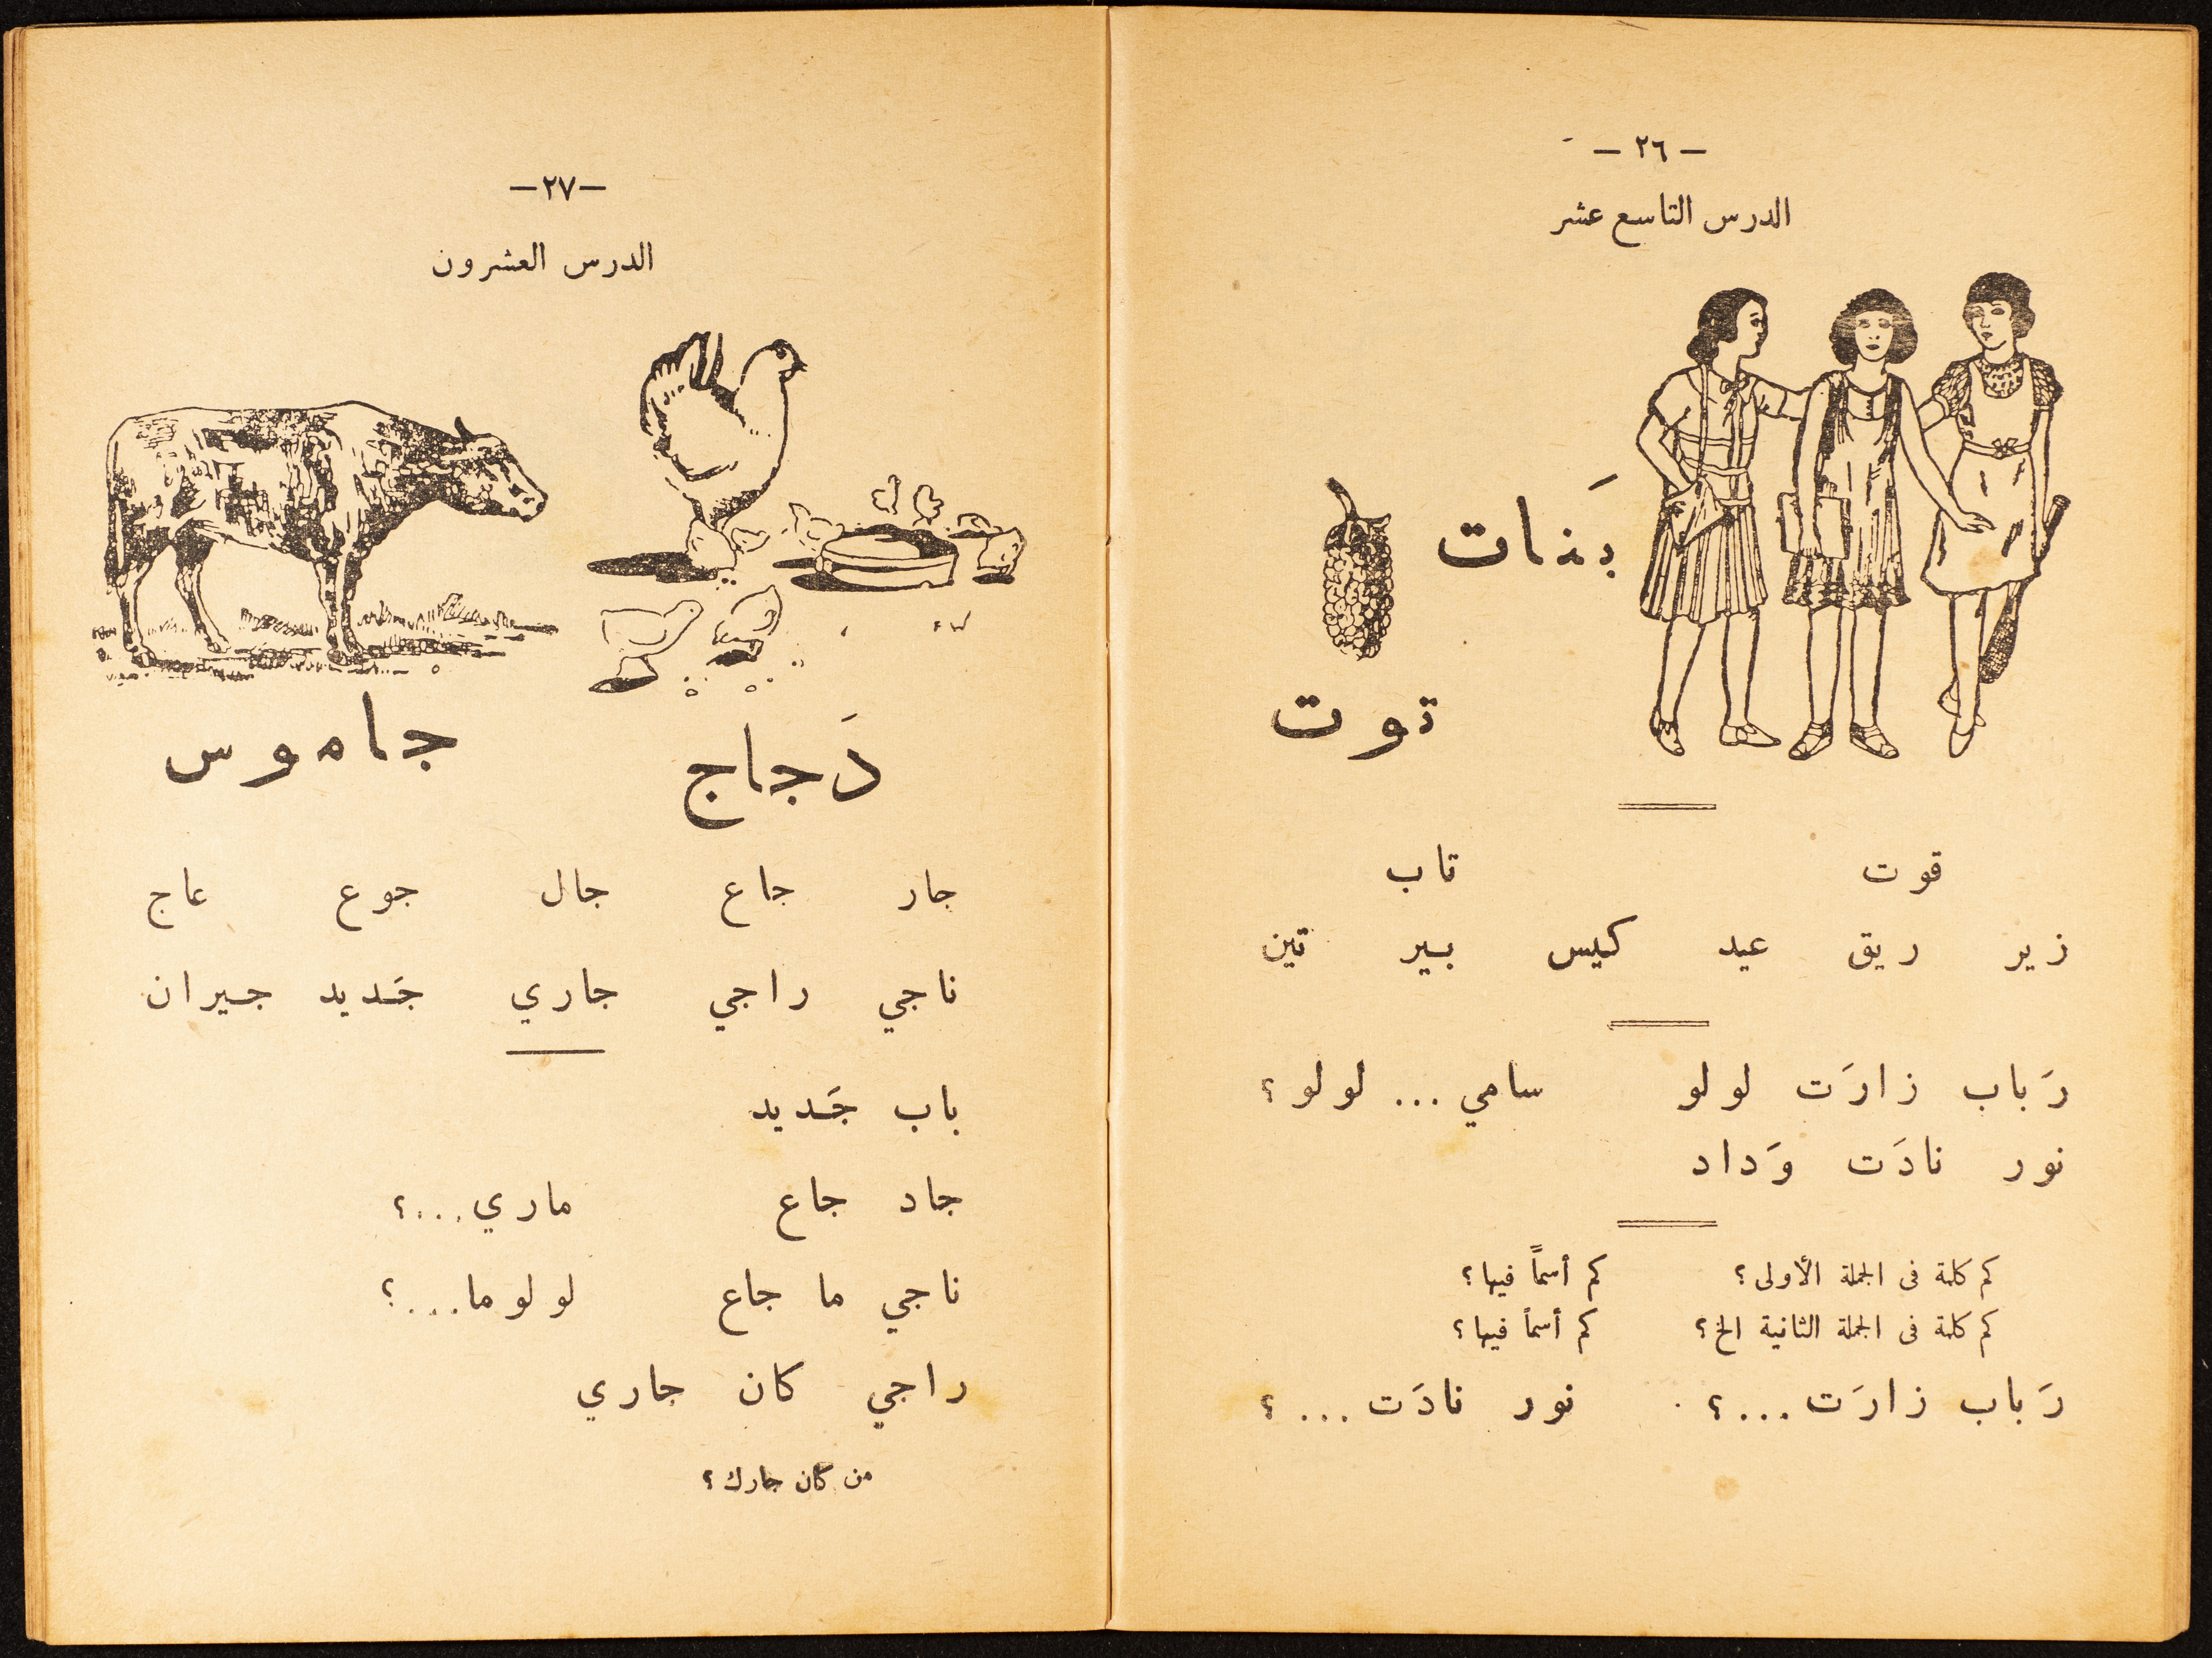 — ٢٦ —
الدرس التاسع عشر
بَنات
توت
قوت تاب
زير ريق عيد كيس بير تين
رَباب زارَت لولو سامي ... لولو ؟
نور نادَت وَداد
كم كلمة فى الجملة الأولى ؟ كم أسماً فيها ؟
كم كلمة فى الجملة الثانية الخ ؟ كم أسماً فيها ؟
رَباب زارَت ... ؟ نور نادَت ... ؟
—٢٧—
الدرس العشرون
دَجاج جاموس
جار جاع جال جوع عاج
ناجي راجي جاري جَديد جيران
باب جَديد
جاد جاع ماري ...؟
ناجي ما جاع لولو ما ...؟
راجي كان جاري
من كان جارك ؟